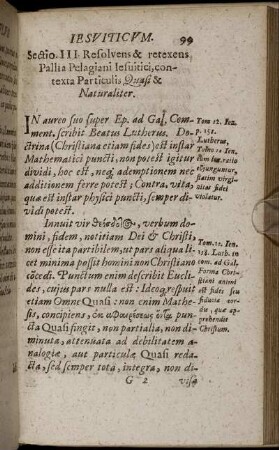 IESVITICVM. 99
Sectio III. Resolvens & retexens
Pallia Pelagiani Iesuitici, con-
texta Particulis, Quasi &
Naturaliter.
IN aureo suo super Ep. ad Gal. Com-
ment. scribit Beatus Lutherus. Do-
ctrina (Christiana etiam fides) est instar
Mathematici puncti, non potest igitur
dividi, hoc est, neq; ademptionem nec
additionem ferre potest; Contra, vita,
quæ est instar physici puncti, semper di-
vidi potest.
Innuit vir θεόσδοτος, verbum do-
mini, fidem, notitiam Dei & Christi,
non esse ita partibilem, ut pars aliqua li-
cet minima possit homini non Christiano
cōcedi. Punctum enim describit Eucli-
des, cujus pars nulla est: Ideoq; respuit
etiam Omne Quasi: non enim Mathe-
sis, concipiens, ὡς ἀφαιρέσεως ὄντα pun-
cta Quasi fingit, non partialia, non di-
minuta, attenuata ad debilitatem a-
nalogiæ, aut particulæ Quasi reda-
cta, sed semper tota, integra, non di-
G 2 visa
Tom 12. Ien.
p. 152.
Lutherus,
Tom. 12. Ien.
visa 
fidei
violatur.
Tom. 12. Ien.
138. Luth. in
com. ad Gal.
Forma Chri-
stiani animi
est fides seu
fiducia cor-
dis, quæ ap-
prehendit
Christum.